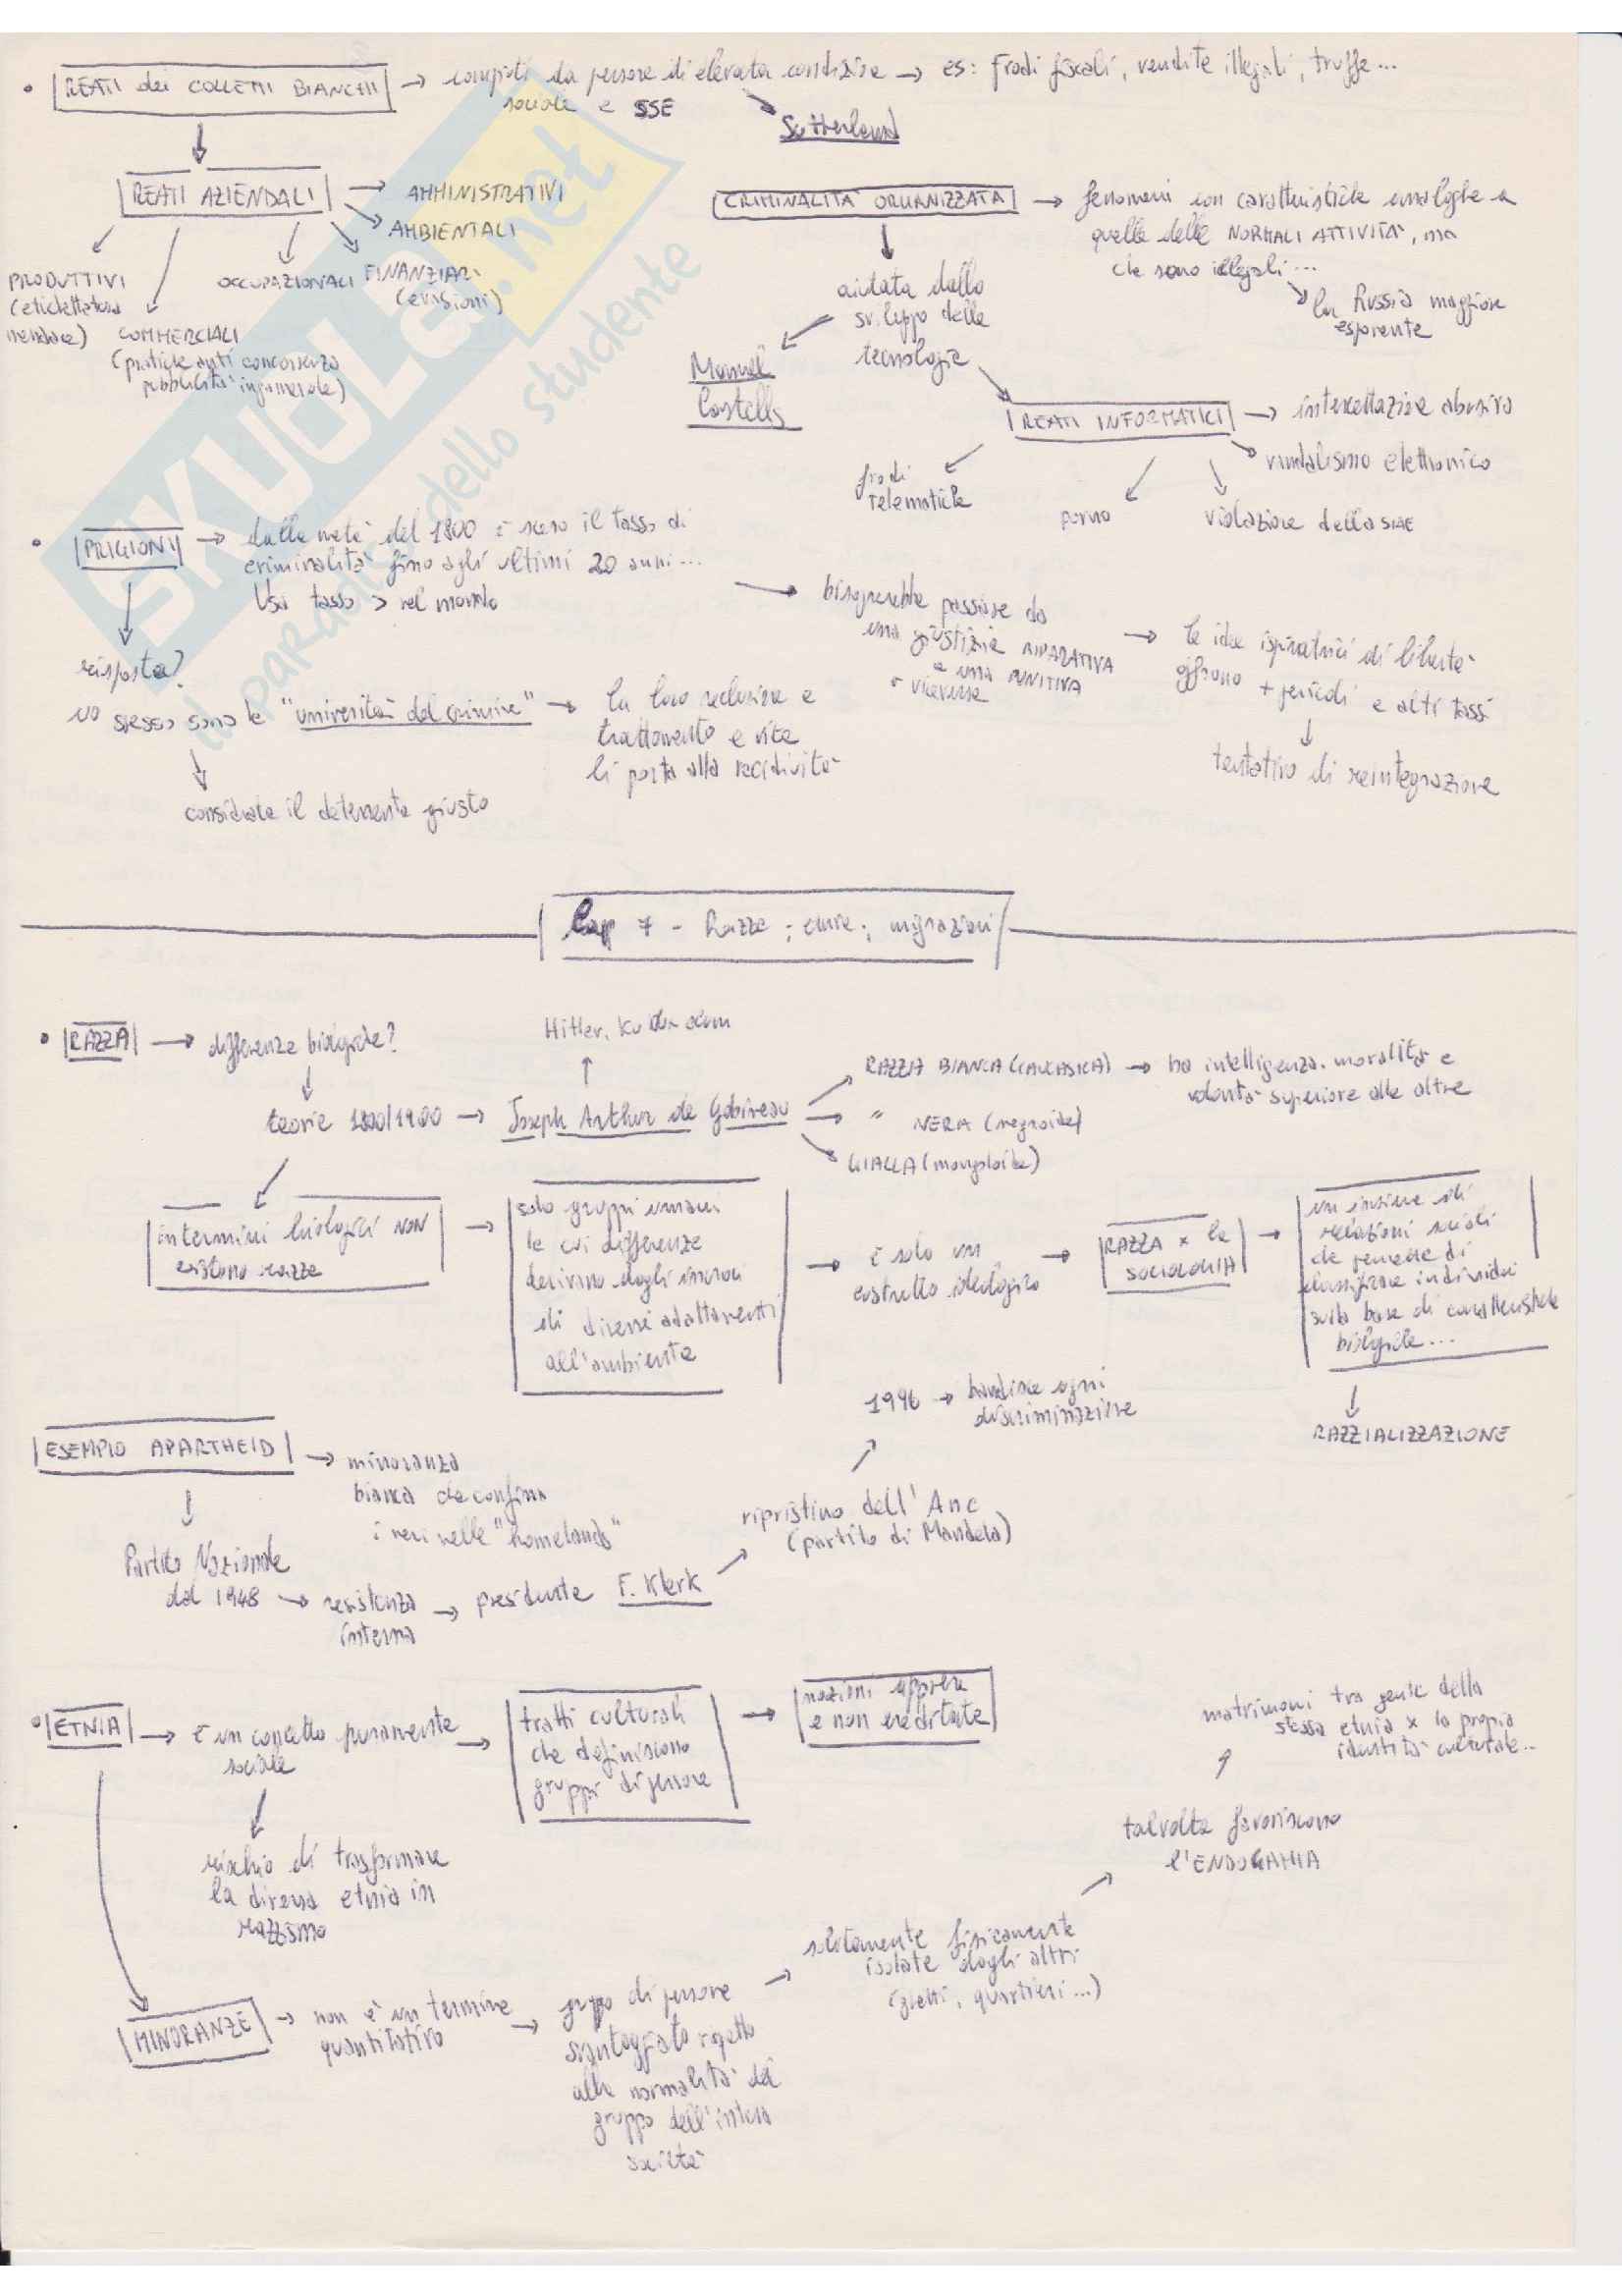 REATI dei COLLETTI BIANCHI → compiuti da persone di elevata condizione → es: frodi fiscali, vendite illegali, truffe...
sociale e SSE
Sutherland
REATI AZIENDALI → AMMINISTRATIVI
AMBIENTALI
PRODUTTIVI
(etichettatura
mendace)
COMMERCIALI
(pratiche anti concorrenza
pubblicità ingannevole)
OCCUPAZIONALI
FINANZIARI
(evasioni)
CRIMINALITÀ ORGANIZZATA → fenomeni con caratteristiche analoghe a
quelle delle NORMALI ATTIVITÀ, ma
che sono illegali...
la Russia maggiore
esponente
aiutata dallo
sviluppo delle
tecnologie
Manuel
Castells
REATI INFORMATICI → intercettazione abusiva
vandalismo elettronico
frodi
telematiche
porno
violazione della SIAE
PRIGIONI → dalla metà del 1800 è sceso il tasso di
criminalità fino agli ultimi 20 anni...
Usa tasso > nel mondo
risposta?
no spesso sono le "università del crimine" → la loro reclusione e
trattamento e vita
li porta alla recidività
considerate il deterrente giusto
bisognerebbe passare da
una giustizia RIPARATIVA
a una PUNITIVA
o viceversa
le idee ispiratrici di libertà
offrono + pericoli e alti tassi
tentativo di reintegrazione
Cap 7 - Razze; etnie; migrazioni
RAZZA → differenze biologiche?
Hitler, Ku
teorie 1800/1900 → Joseph Arthur de Gobineau
RAZZA BIANCA (CAUCASICA) → ha intelligenza, moralità e
volontà superiore alle altre
" NERA (negroide)
GIALLA (mongoloide)
in termini biologici NON
esistono razze
solo gruppi umani
le cui differenze
derivano dagli incroci
di diversi adattamenti
all'ambiente
è solo un
costrutto ideologico
RAZZA x la
SOCIOLOGIA
un insieme di
relazioni sociali
che permette di
classificare individui
sulla base di caratteristiche
biologiche...
RAZZIALIZZAZIONE
ESEMPIO APARTHEID → minoranza
bianca che confina
i neri nelle "homelands"
Partito Nazionale
dal 1948 → resistenza
interna → presidente F. Klerk
ripristino dell'Anc
(partito di Mandela)
1996 → bandisce ogni
discriminazione
ETNIA → è un concetto puramente
sociale
tratti culturali
che definiscono
gruppi di persone
nozioni apprese
e non ereditate
rischio di trasformare
la diversa etnia in
razzismo
MINORANZE → non è un termine
quantitativo
gruppo di persone
svantaggiato rispetto
alla normalità del
gruppo dell'intera
società
solitamente fisicamente
isolate dagli altri
(ghetti, quartieri...)
talvolta favoriscono
l'ENDOGAMIA
matrimoni tra gente della
stessa etnia x la propria
identità culturale...
SKUOLA.net
il paradiso dello studente